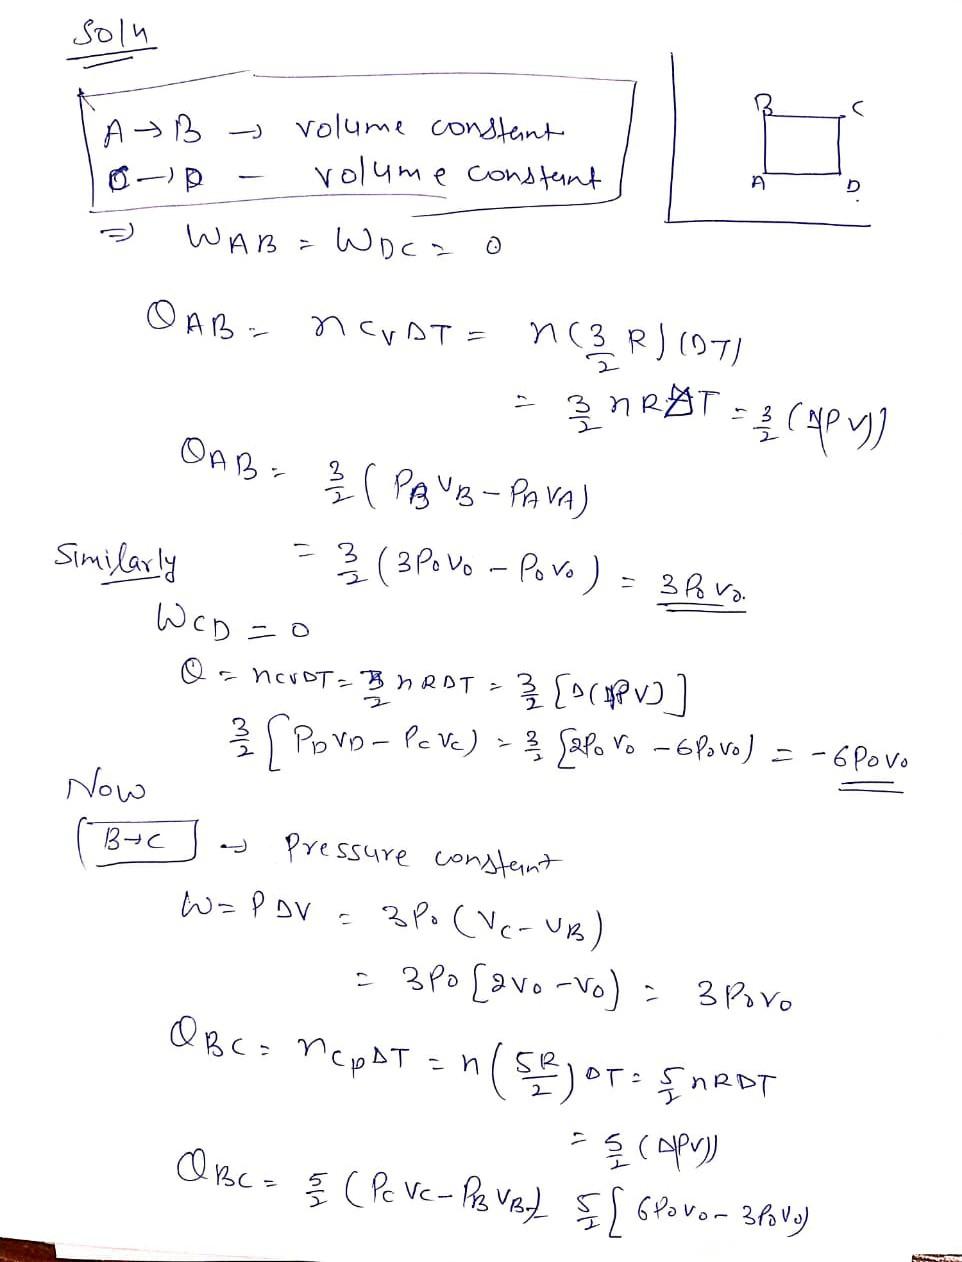 Soln
A → B → volume constant
C → D - volume constant
B C
A D
⇒ WAB = WDC = 0
QAB = nCvΔT = n(3/2 R)(ΔT)
= 3/2 nRΔT = 3/2 (ΔPV))
QAB = 3/2 (PBVB - PAVA)
= 3/2 (3P0V0 - P0V0) = 3P0V0.
Similarly
WCD = 0
Q = nCvΔT = 3/2 nRΔT = 3/2 [Δ(PV)]
3/2 [PDVD - PCVC) = 3/2 [2P0V0 - 6P0V0) = -6P0V0
Now
B→C → Pressure constant
W = PΔV = 3P0 (VC - VB)
= 3P0 [2V0 - V0) = 3P0V0
QBC = nCpΔT = n(5R/2)ΔT = 5/2 nRΔT
= 5/2 (ΔPV))
QBC = 5/2 (PCVC - PBVB) 5/2 [6P0V0 - 3P0V0)